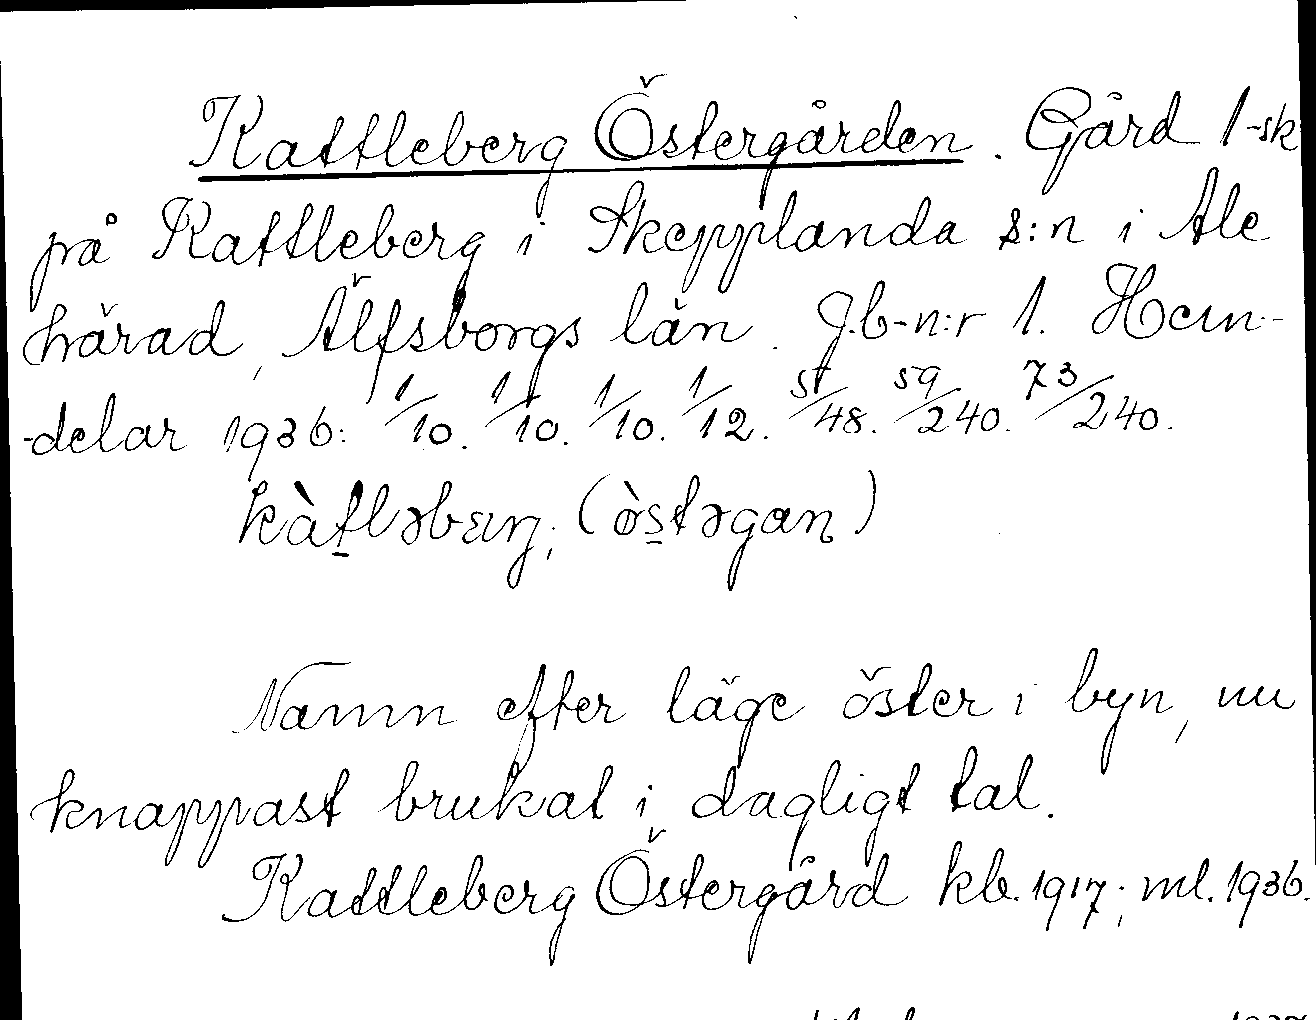 Kattleberg Östergården. Gård 1-sk
på Kattleberg i Skepplanda s:n i Ale
härad, Älfsborgs län. J.b-n:r 1. Hem-
-delar 1936: 1/10. 1/10. 1/10. 1/12. 5/48. 59/240. 73/240.
kàtləbærj, (òstəgan)
Namn efter läge öster i byn, nu
knappast brukat i dagligt tal.
Kattleberg Östergård kb. 1917; ml. 1936.